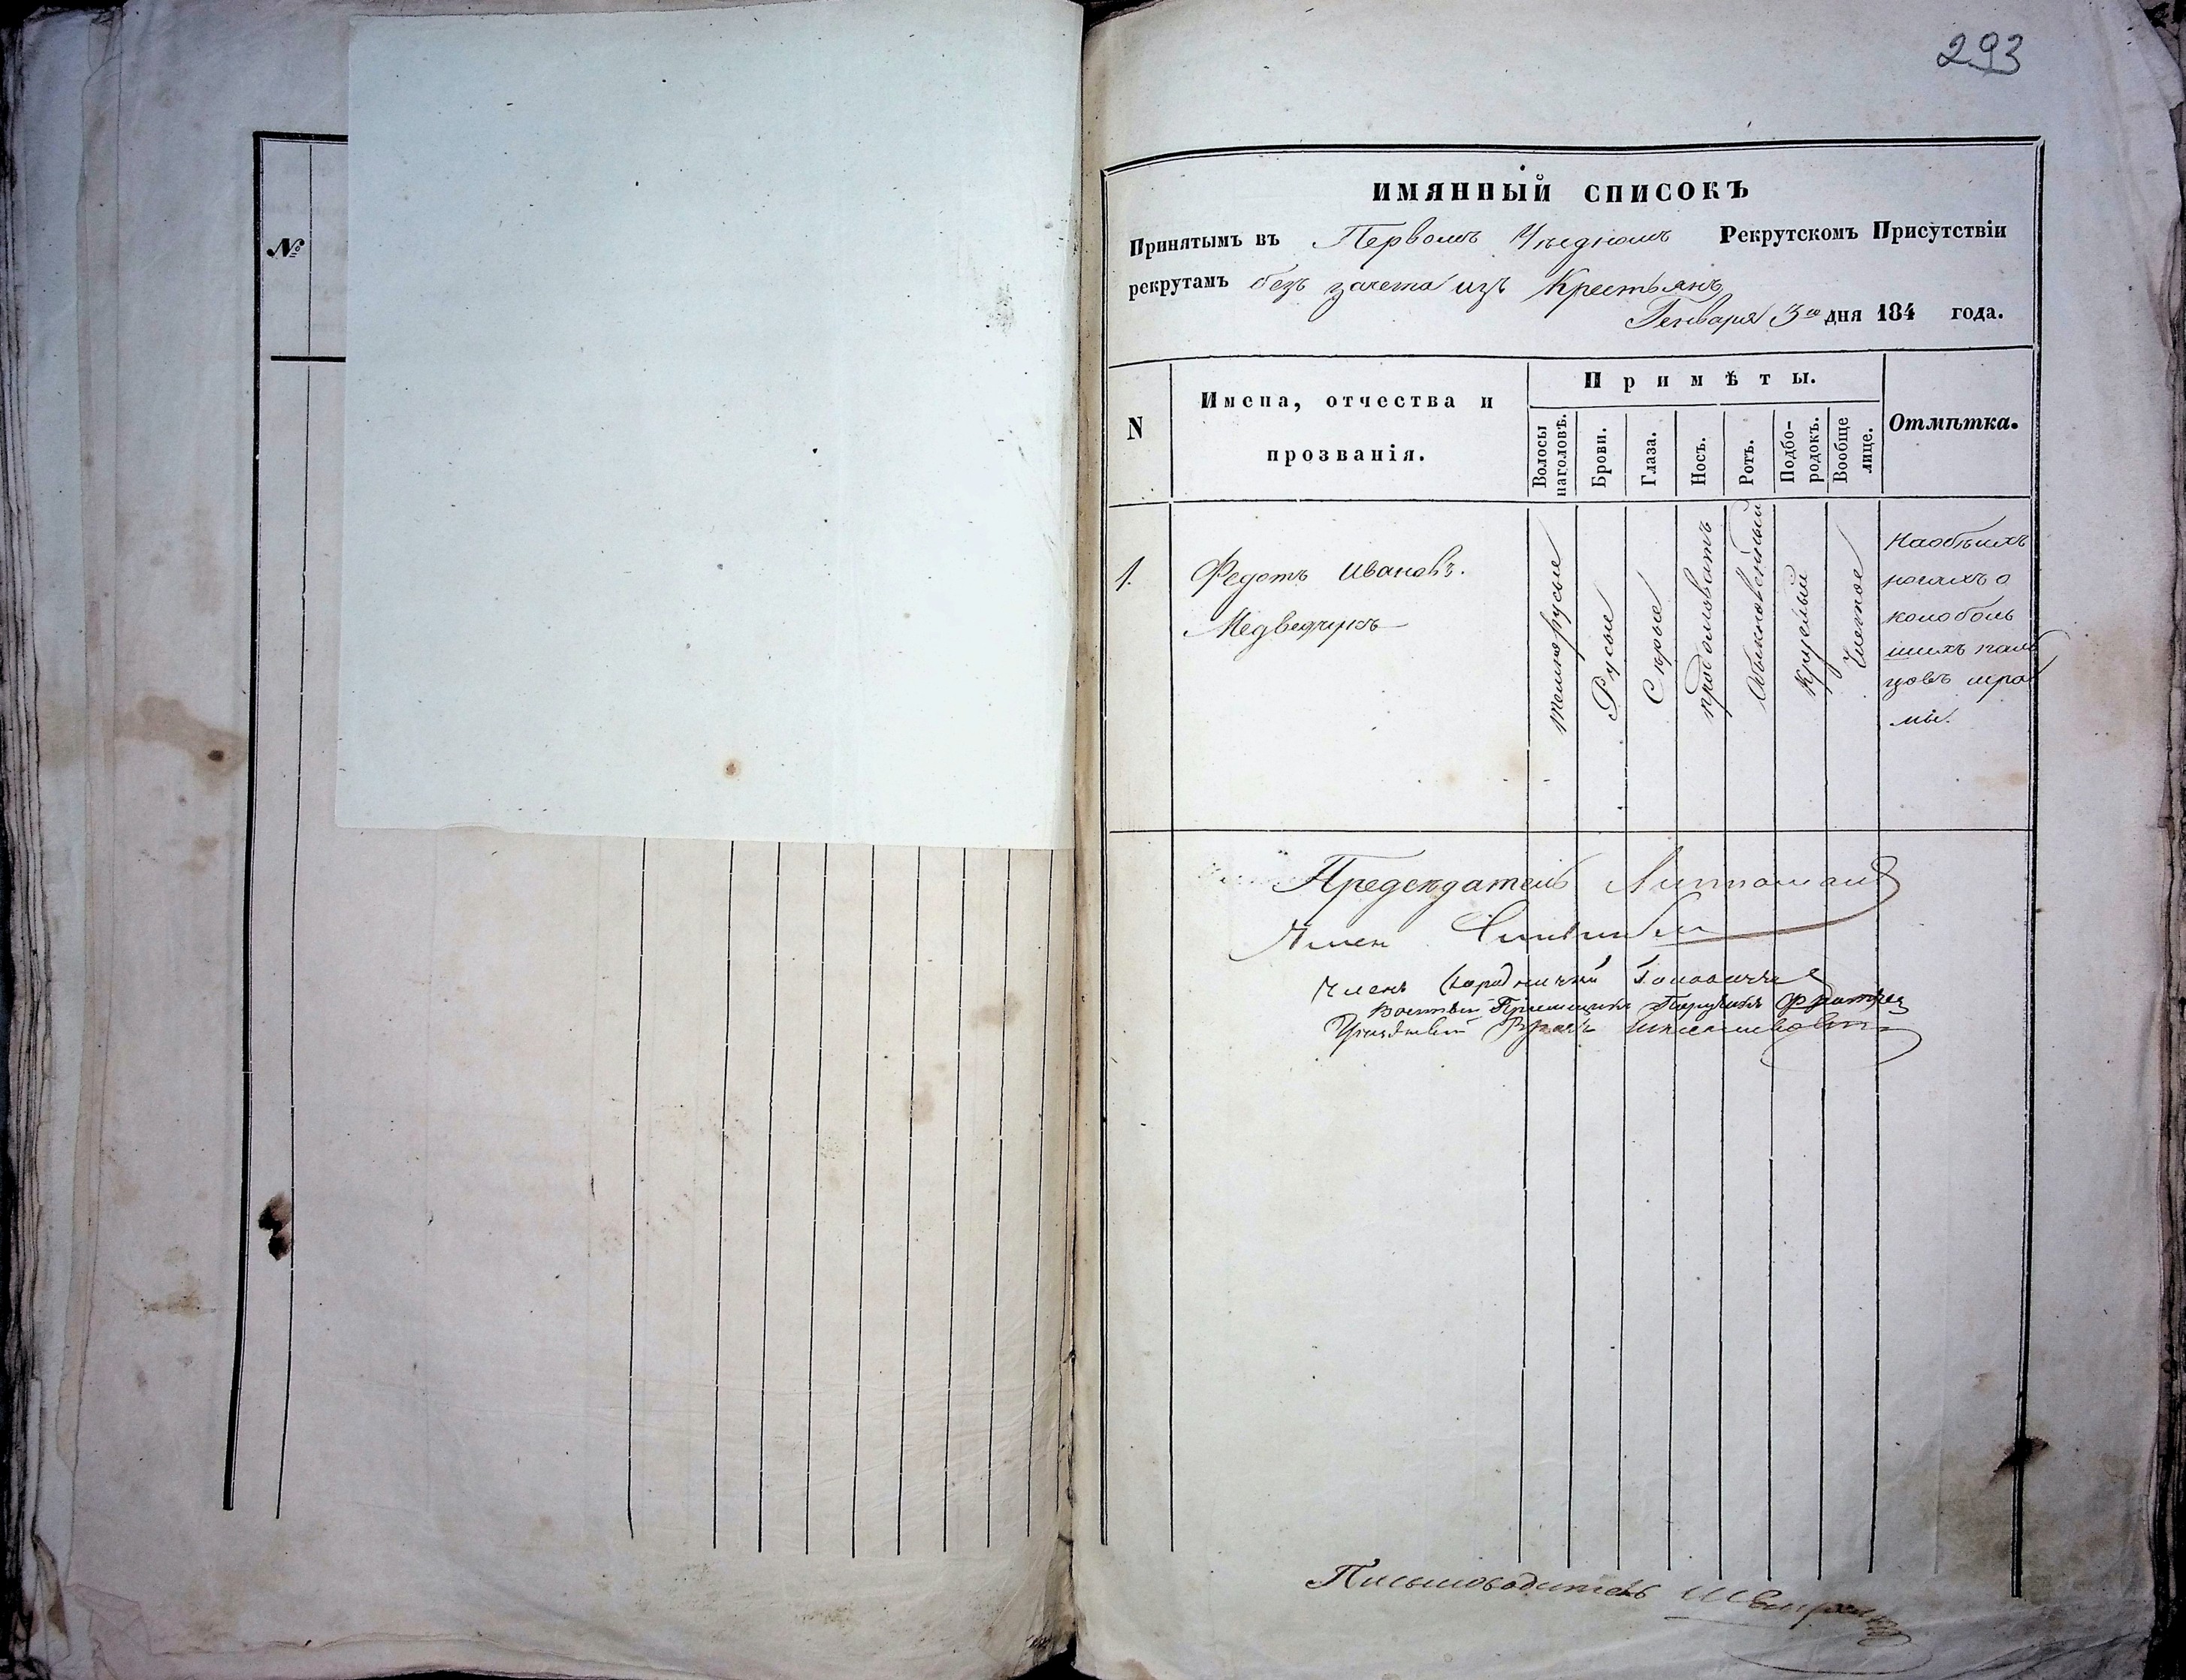 №
293
ИМЯННЫЙ СПИСОКЪ
Принятымъ въ Первомъ Уѣздномъ Рекрутскомъ Присутствіи
рекрутамъ безъ зачета изъ Крестьянъ
Генваря 3го дня 184 года.
N
Имена, отчества и
прозванія.
Примѣты.
Волосы
наголовѣ.
Брови.
Глаза.
Носъ.
Ротъ.
Подбо-
родокъ.
Вообще
лице.
Отмѣтка.
1.
Федотъ Ивановъ.
Темнорусые
Русые
Сѣрые
продолговатъ
Обыкновенный
Круглый
Чистое
Наобѣихъ
ногахъ о
колоболь
шихъ паль
цовъ шра
мы.
Предсѣдатель
Член
Членъ Городничий
Военный Приемщикъ Поручикъ
Уѣздный Врачъ
Письмоводитель